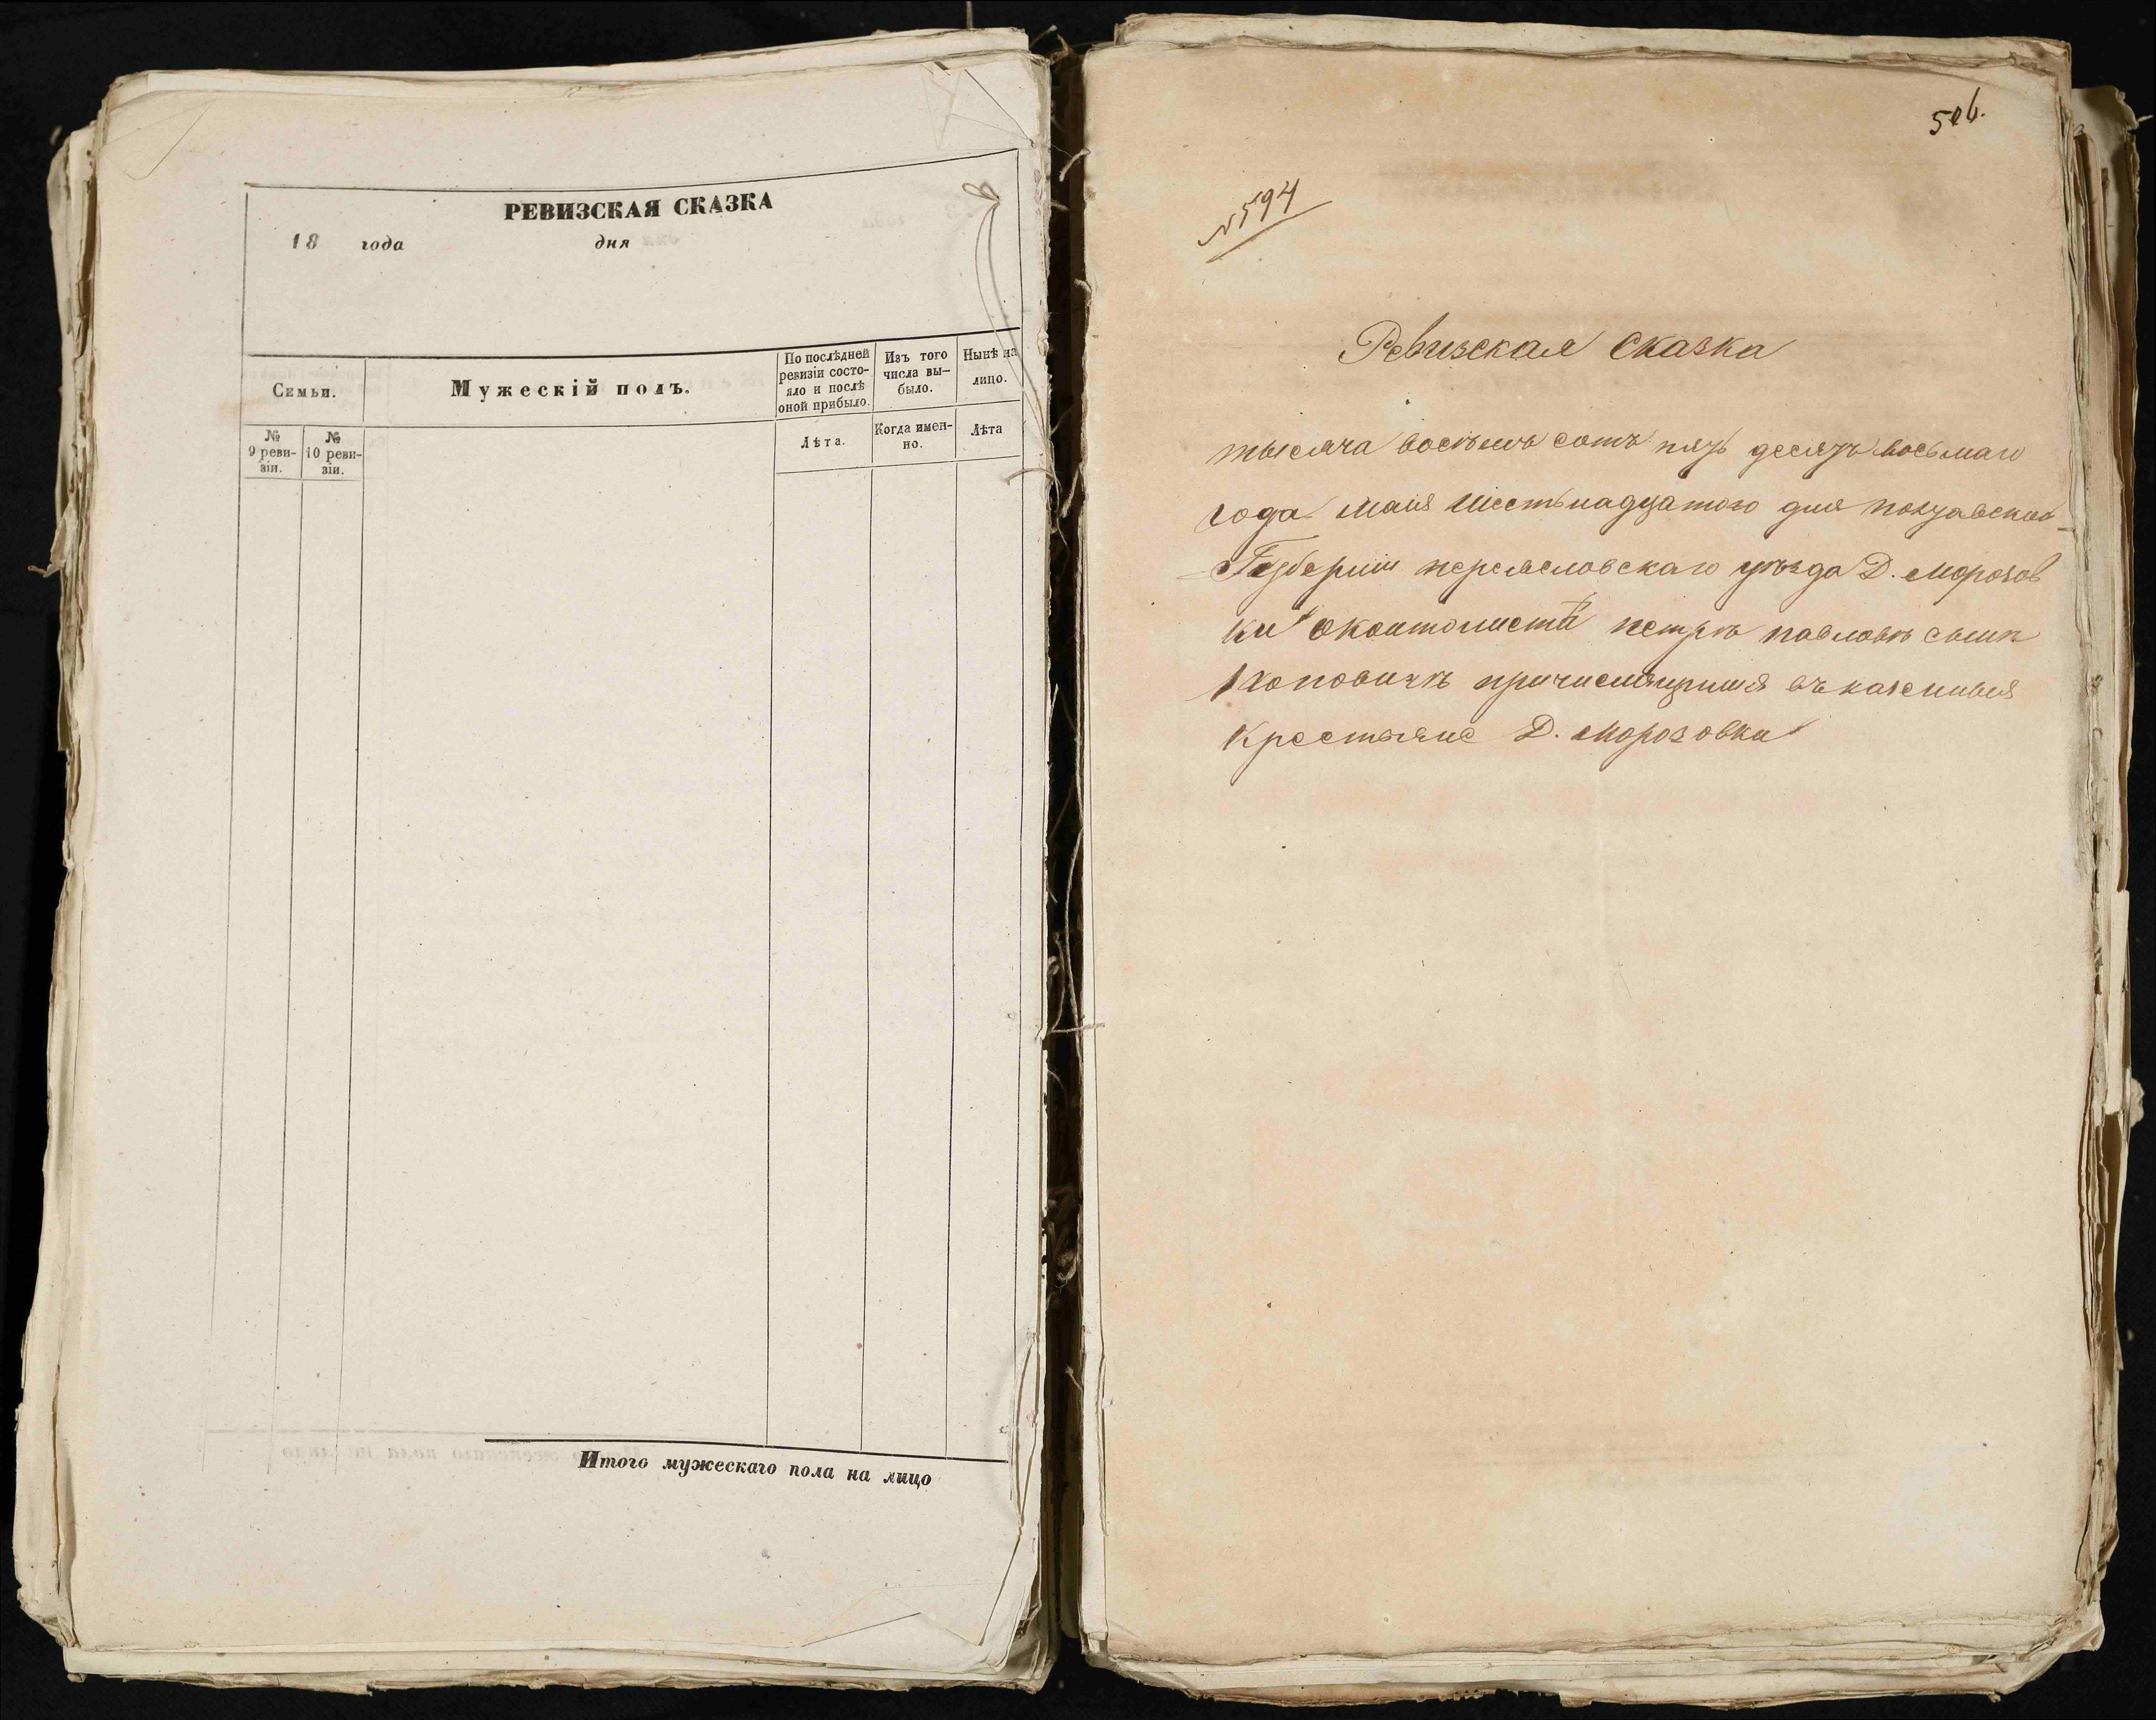 РЕВИЗСКАЯ СКАЗКА
18 года дня
Семьи.
Мужескій полъ.
По послѣдней ревизіи состо-
яло и послѣ оной прибыло.
Изъ того числа вы-
было.
Нынѣ на лицо.
№ 9 реви-
зіи.
№ 10 реви-
зіи.
Лѣта.
Когда имен-
но.
Лѣта
Итого мужескаго пола на лицо
506.
№594
Ревизская Сказка
тысяча восѣмь сотъ пять десять восьмаго
года мaия Шестьнадцатого дня полтавской
Губерніи переясловскаго уѣзда Д. Морозов
ки петръ павловъ сынъ
причислящиися въ казенныя
Крестьяне Д. Морозовки